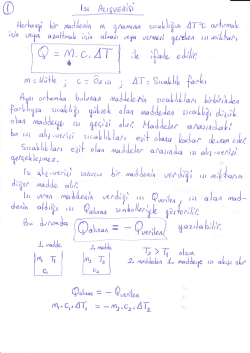 1
ISI ALIŞVERİŞİ
Herhangi bir maddenin m gramının sıcaklığını ΔT °C artırmak
için veya azaltmak için alması veya vermesi gereken ısı miktarı,
Q = m. c. ΔT ile ifade edilir.
m = kütle ; c = öz ısı ; ΔT = Sıcaklık farkı
Aynı ortamda bulunan maddelerin sıcaklıkları birbirinden
farklıysa sıcaklığı yüksek olan maddeden sıcaklığı düşük
olan maddeye ısı geçişi olur. Maddeler arasındaki
bu ısı alış-verişi sıcaklıkları eşit olana kadar devam eder.
Sıcaklıkları eşit olan maddeler arasında ısı alış-verişi
gerçekleşmez.
Isı alış-verişi sonucu bir maddenin verdiği ısı miktarını
diğer madde alır.
Isı veren maddenin verdiği ısı Qverilen, ısı alan mad-
denin aldığı ısı Qalınan sembolleriyle gösterilir.
Bu durumda Qalınan = - Qverilen yazılabilir.
1. madde 2. madde
m₁ T₁ m₂ T₂ T₂ > T₁ olsun
c₁ c₂ 2. maddeden 1. maddeye ısı akışı olur
Qalınan = - Qverilen
m₁. c₁. ΔT₁ = - m₂. c₂. ΔT₂